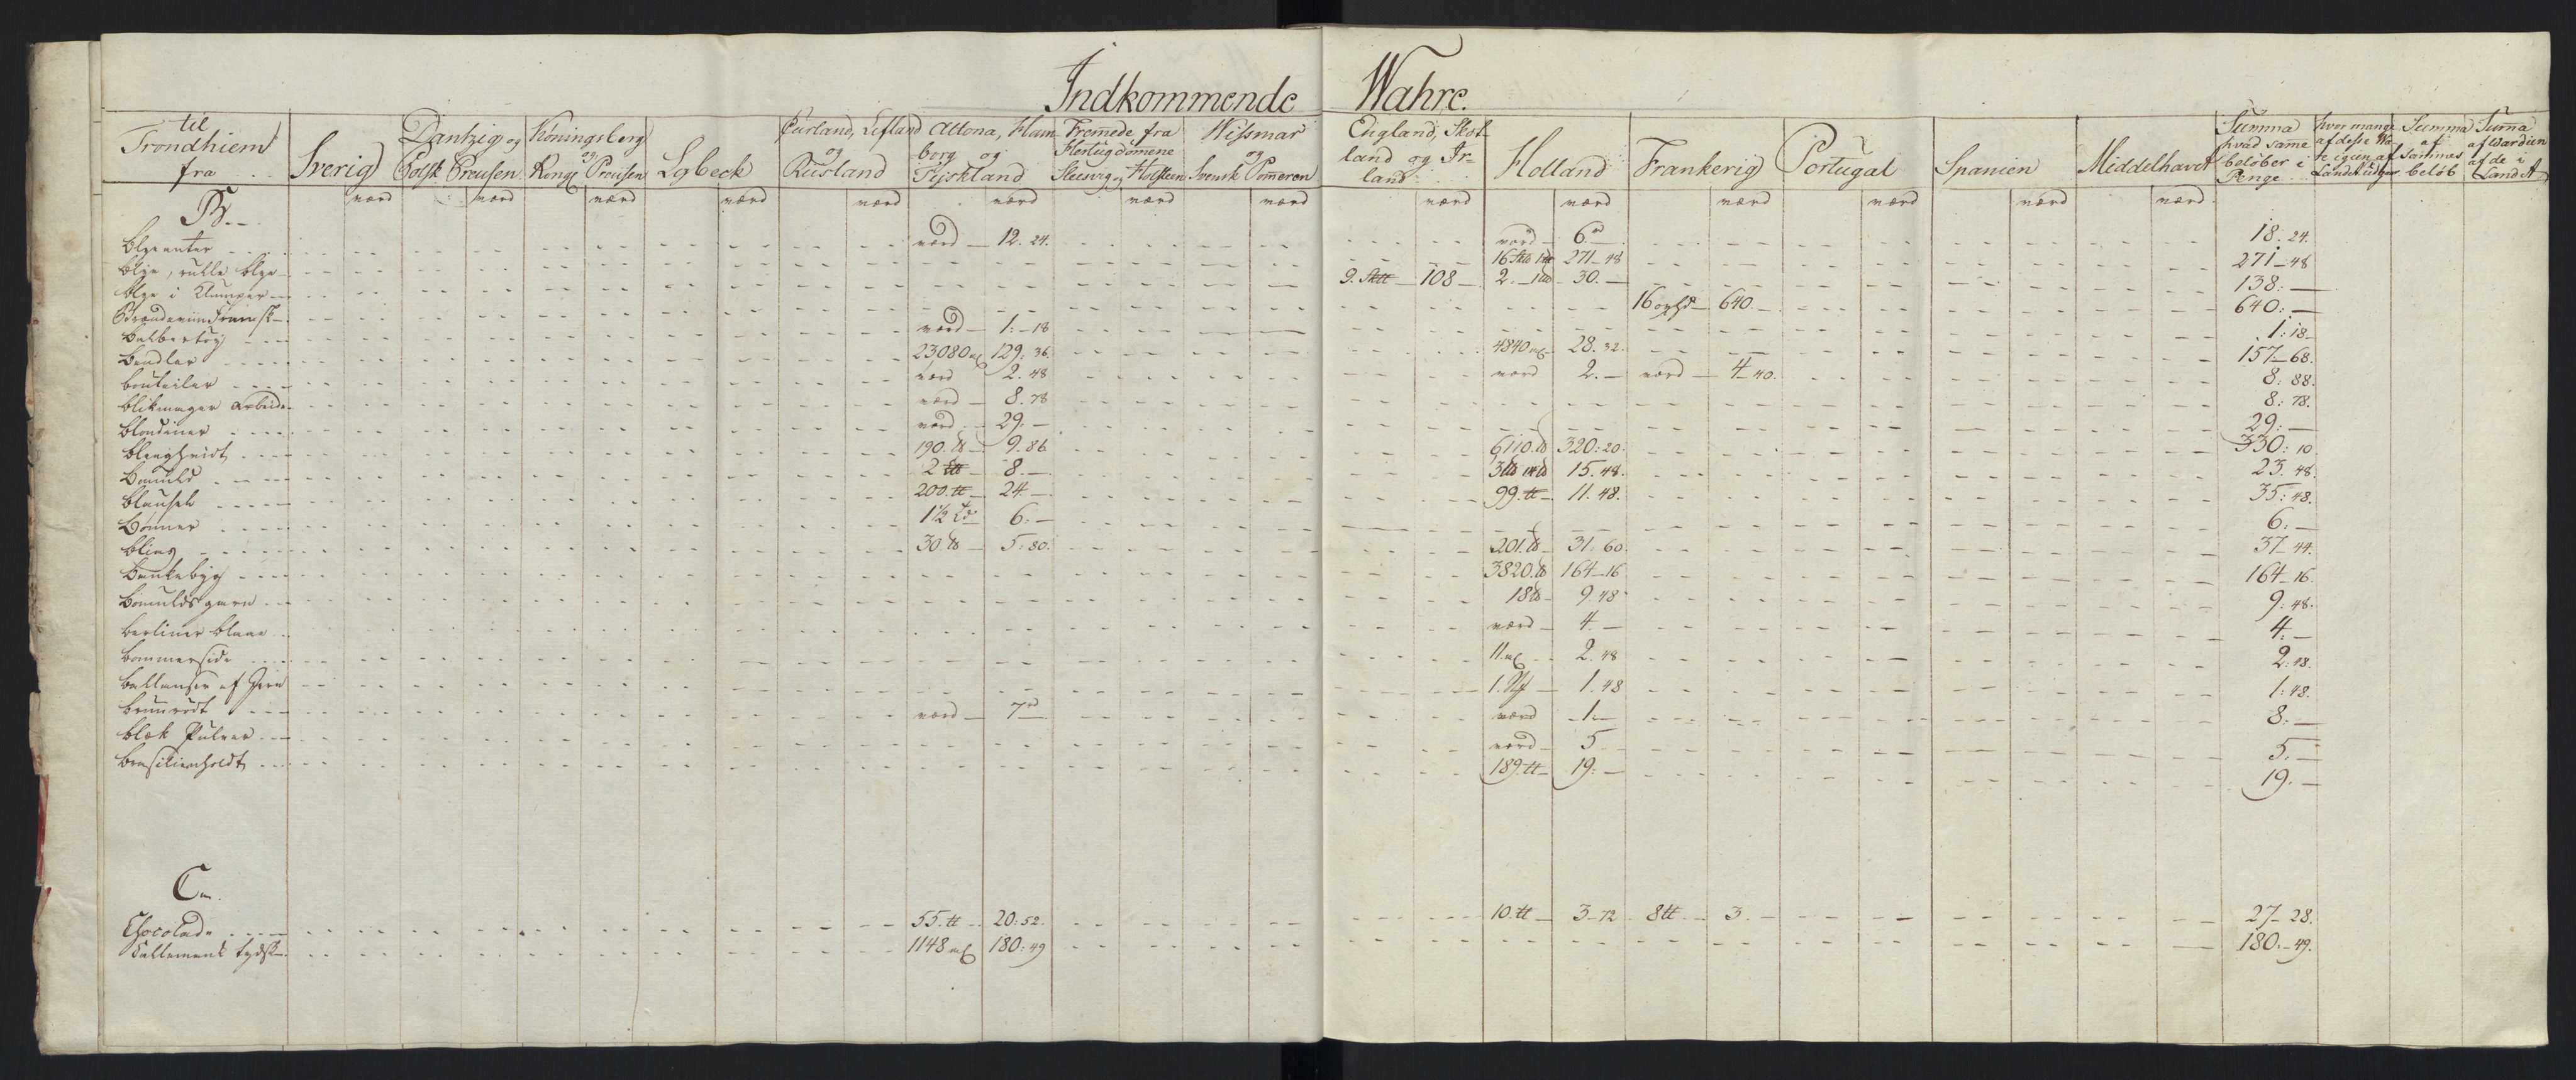 Indkommende Wahre.
til Trondhiem fra
Sverig
Dantzig og Polsk Preusen
Köningsberg og Kongl Preusen
Lybeck
Curland, Lefland og Rusland
Altona, Hamborg og Tyskland
Fremede fra Hertugdomene Slesvig og Holsteen
Wissmar og Svensk Pomeren
England, Skotland og Irland
Holland
Frankerig
Portugal
Spanien
Middelhavet
Summa hvad same beløber i Penge
hvor mange af desse Wahre igien af Landet udgaar
Summa af sammes beløb
Suma af Værdien af de i Landet
værd værd værd værd værd værd værd værd værd værd værd værd værd værd
B.
Blyeanter værd 12. 24. værd 6. 18. 24.
Blye, rulle Blye 271 48 271 48
Blye i Klumper 108 2. 30. 138.
Brændeviin Fransk 16 oxhd 640. 640.
Balbertøy værd 1. 18 1. 18
Bendler 23080 129. 36. 4840 28. 32. 157 68.
bouteiler værd 2. 48 værd 2. værd 4 40. 8. 88.
blikmager arbeide værd 8. 78 8. 78.
Blondiner værd 29. 29.
Bleyhvidt 190. 9. 86 6110. 320. 20. 330. 10
Bomuld 2 8. 15. 48. 23. 48.
Blaufeld 200. 24 99. 11. 48. 35. 48.
Bønner 1½ 6. 6.
bling 30. 5. 80. 201. 31. 60. 37 44.
Bankebyg 3820. 164 16 164 16.
Bomulds garn 18 9. 48 9. 48.
berliner blaae værd 4. 4.
bommerside 11. 2. 48 2. 48.
Ballanser af Jern 1. 1. 48 1. 48.
bruunrødt værd 7 værd 1. 8.
blæk Pulver værd 5. 5.
brasilienholdt 189. 19. 19.
C.
Chocolade 55. 20. 52. 10. 3 72 8 3. 27 28.
Callemank tydsk 1148 180. 49 180. 49.